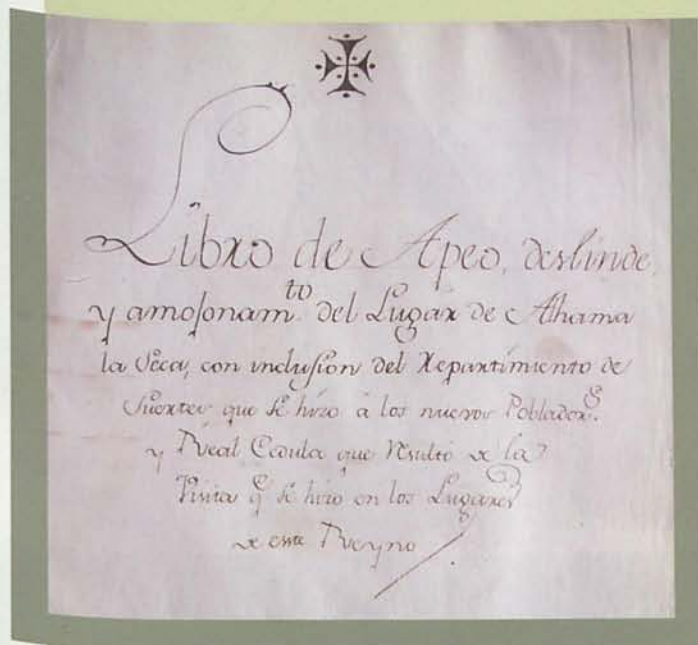 Libro de Apeo, deslinde
y amojonam.to del Lugar de Alhama
la Seca, con inclusion del Repartimiento de
Suertes que se hizo à los nuevos Pobladores.
y Real Cedula que resultó de la
Visita q.e se hizo en los Lugares
de este Reyno